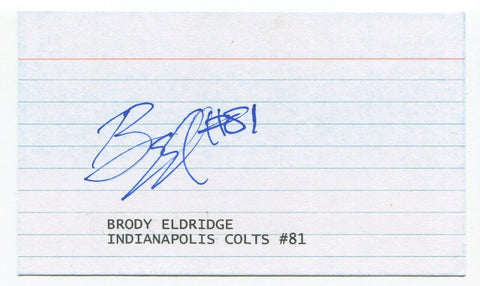 #81
BRODY ELDRIDGE
INDIANAPOLIS COLTS #81